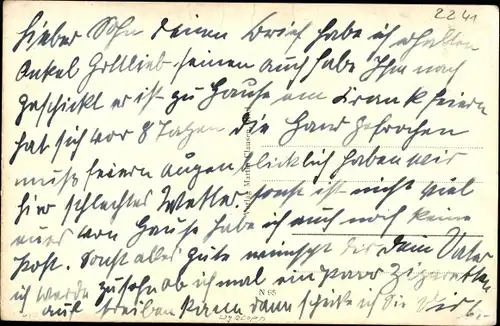 2241
Lieber Sohn deinen Brief habe ich erhalten
Onkel Gottlieb seinen auch habe Ihm nach
geschickt er ist zu Hause am Krank feiern
hat sich vor 8 Tagen die Hand gebrochen
muß feiern Augenblicklich haben wir
hir schlechtes Wetter. sonst ist nicht viel
neues von Hause habe ich auch noch keine
Post. Sonst alles gute wünscht der Dein Vater
ich werde zusehn ob ich mal ein paar Zigaretten
auf treiben kann dann schicke ich Sie Dir
N 65